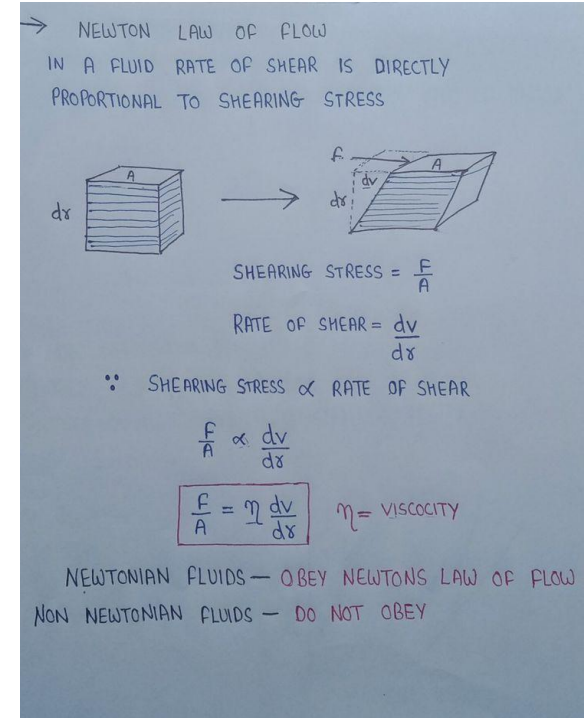 → NEWTON LAW OF FLOW
IN A FLUID RATE OF SHEAR IS DIRECTLY
PROPORTIONAL TO SHEARING STRESS
A
dr
F
A
dv
dr
SHEARING STRESS = F/A
RATE OF SHEAR = dv/dr
∵ SHEARING STRESS ∝ RATE OF SHEAR
F/A ∝ dv/dr
F/A = η dv/dr η = VISCOCITY
NEWTONIAN FLUIDS — OBEY NEWTONS LAW OF FLOW
NON NEWTONIAN FLUIDS — DO NOT OBEY